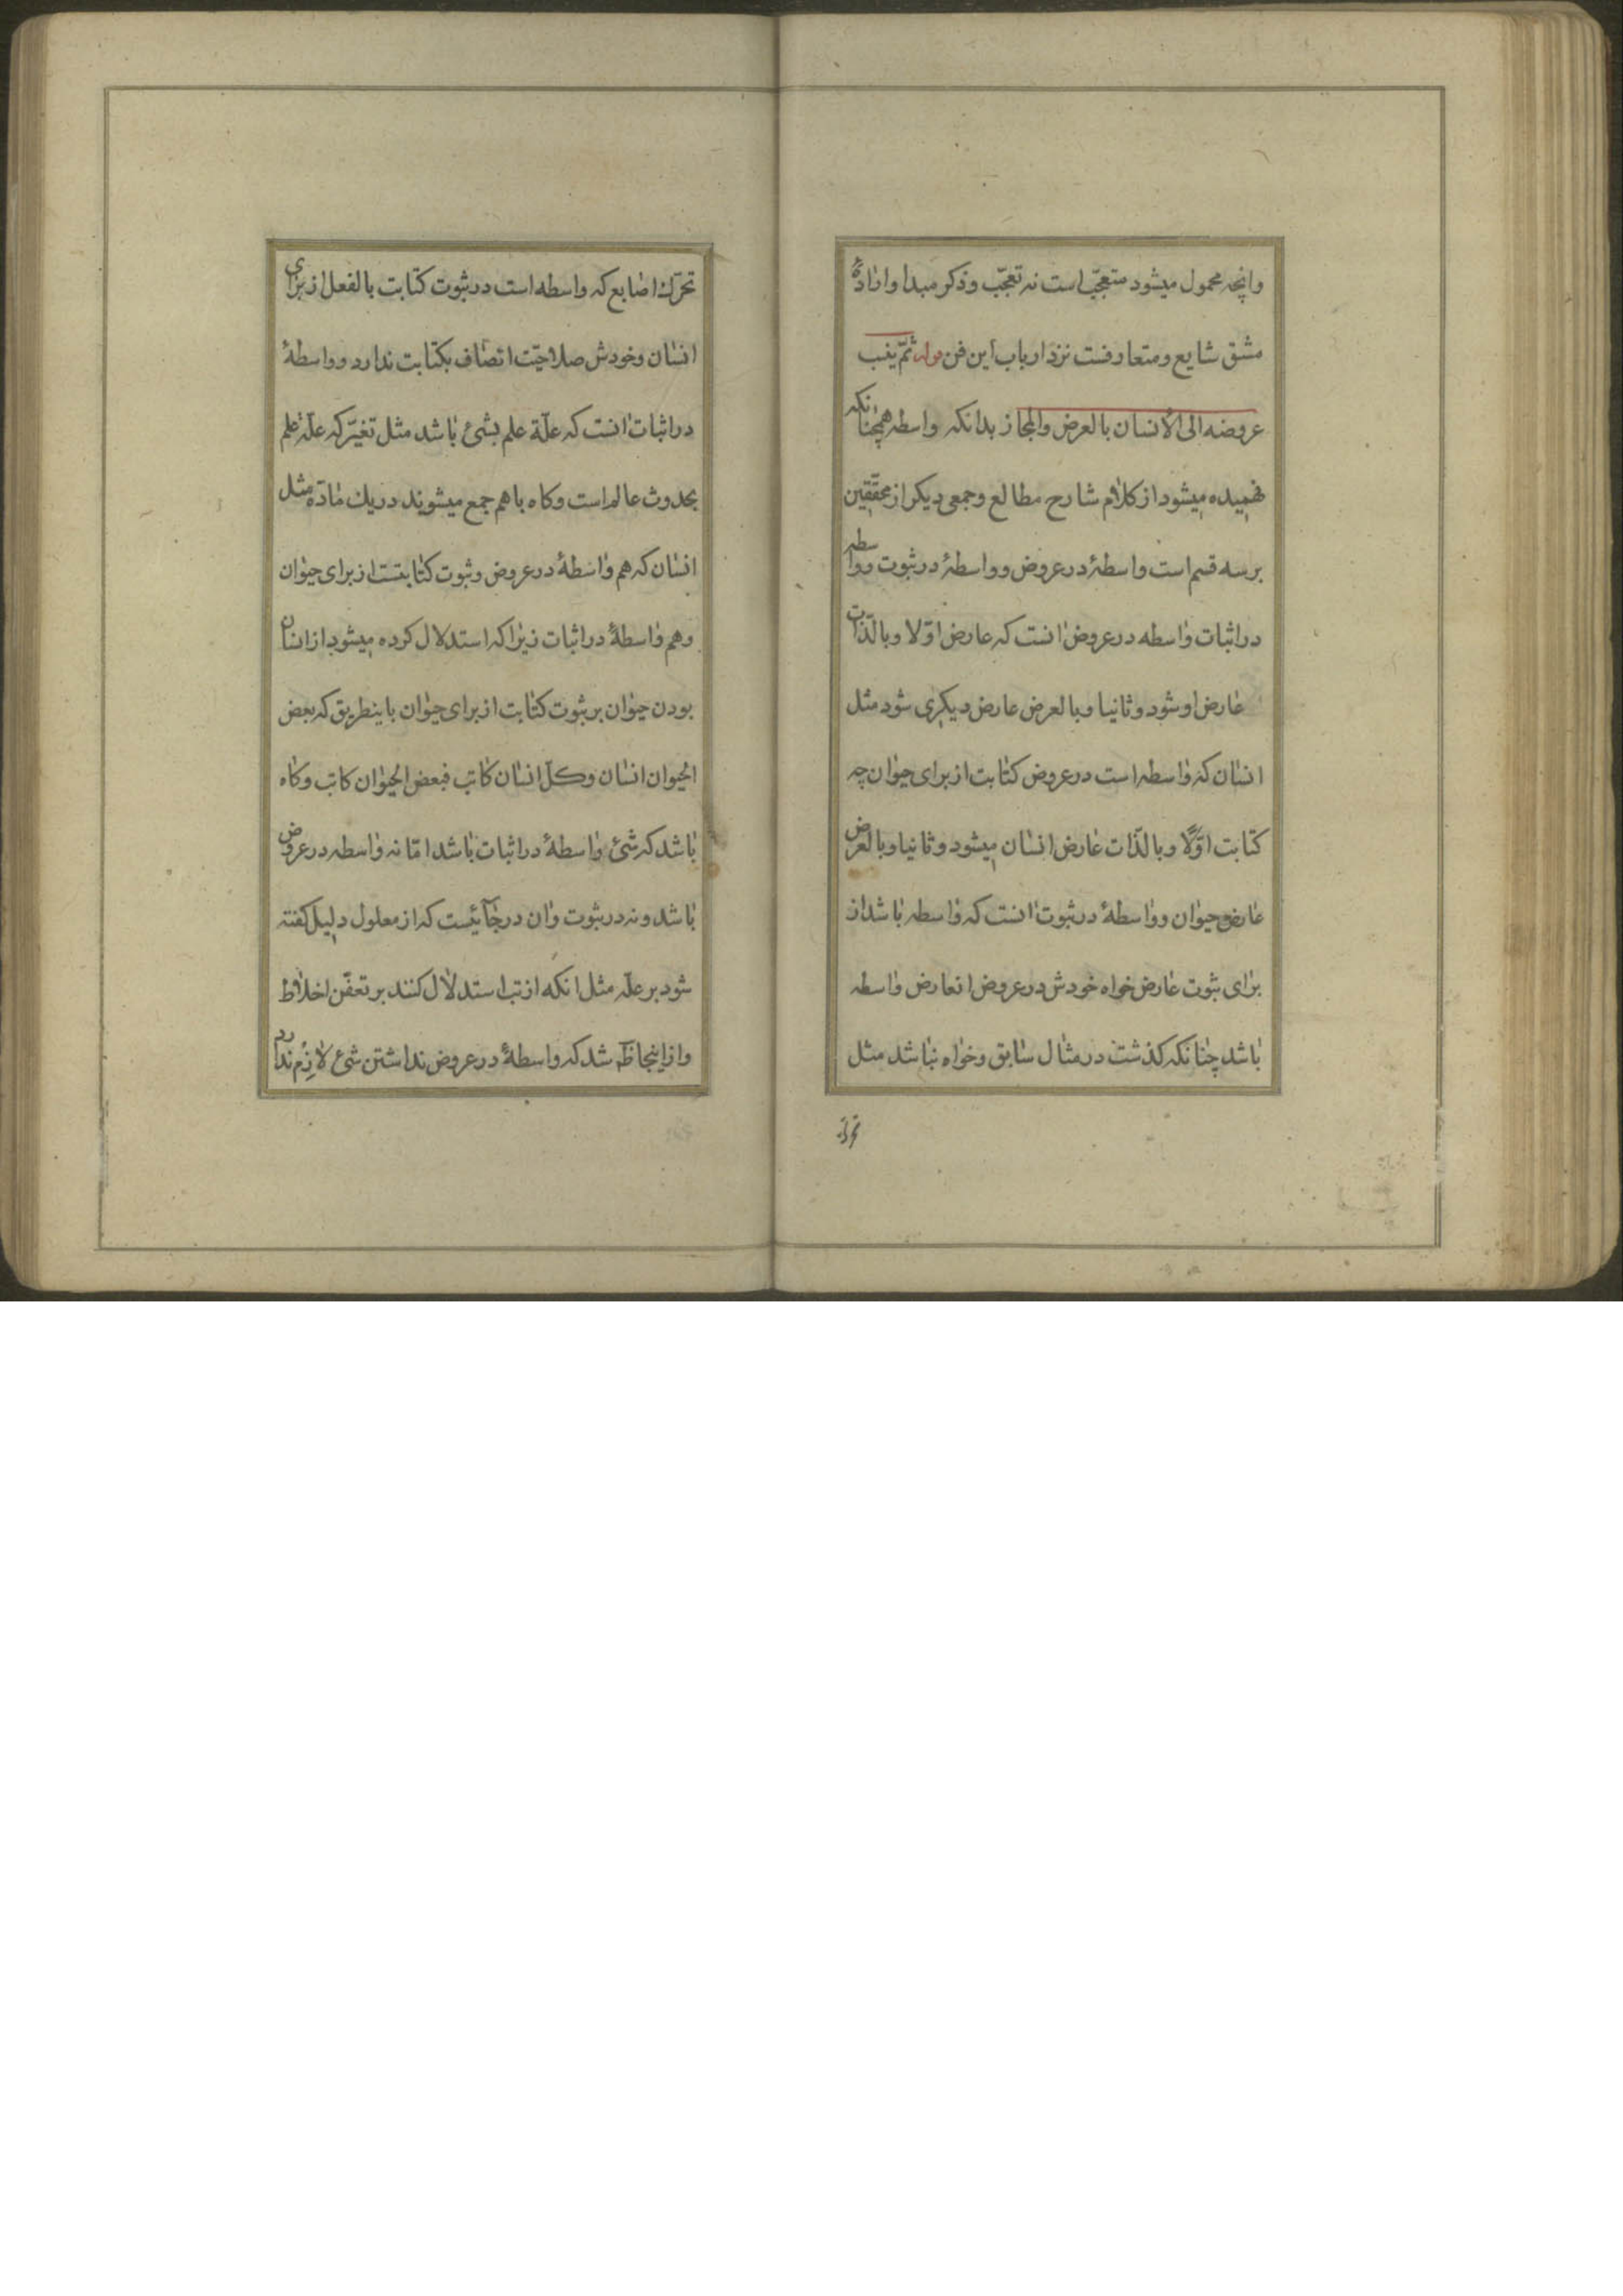 وانچه محمول میشود متعجّب است نه تعجّب وذکر مبدا وارادهٔ
مشق شایع ومتعارفست نزد ارباب این فن قوله ثمّ ینسب
عروضه الی الأنسان بالعرض والمجاز بدانکه واسطه همچنانکه
فهمیده میشود از کلام شارح مطالع وجمعی دیکر از محقّقین
بر سه قسم است واسطهٔ در عروض وواسطهٔ در ثبوت وواسطه
در اثبات واسطه در عروض انست که عارض اوّلا وبالذّات
عارض او شود وثانیا وبالعرض عارض دیکری شود مثل
انسان که واسطه است در عروض کتابت از برای حیوان چه
کتابت اوّلًا وبالذّات عارض انسان میشود وثانیا وبالعرض
عارض حیوان وواسطهٔ در ثبوت انست که واسطه باشد از
برای ثبوت عارض خواه خودش در عروض انعارض واسطه
باشد چنانکه کذشت در مثال سابق وخواه نباشد مثل
تحرّك
تحرّك اصابع که واسطه است در ثبوت کتابت بالفعل از برای
انسان وخودش صلاحیّت اتصاف بکتابت ندارد وواسطهٔ
در اثبات انست که علّة علم بشیٔ باشد مثل تغیّر که علّة علم
بحدوث عالم است وکاه باهم جمع میشوند در یك مادّه مثل
انسان که هم واسطهٔ در عروض وثبوت کتابتست از برای حیوان
وهم واسطهٔ در اثبات زیرا که استدلال کرده میشود از انسان
بودن حیوان بر ثبوت کتابت از برای حیوان باینطریق که بعض
الحیوان انسان وکلّ انسان کاتب فبعض الحیوان کاتب وکاه
باشد که شیٔ واسطهٔ در اثبات باشد امّا نه واسطه در عروض
باشد ونه در ثبوت وان در جائیست که از معلول دلیل کفته
شود بر علّه مثل انکه از تب استدلال کنند بر تعفّن اخلاط
واز اینجا ظَ شد که واسطهٔ در عروض نداشتن شیٔ لازم ندارد